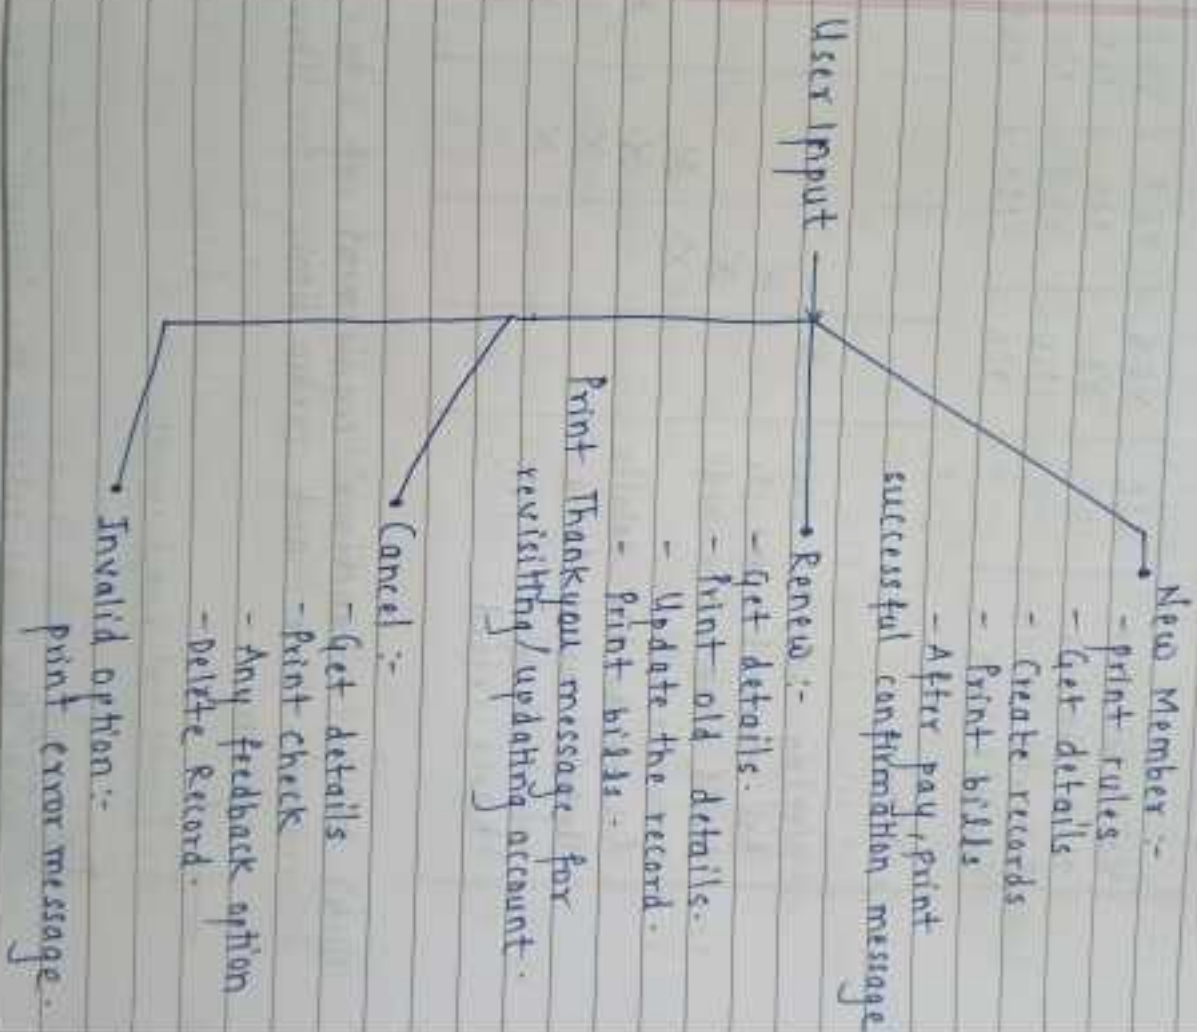 User Input
New Member :-
- print rules
- Get details
- Create records
- Print bills
- After pay, print
successful confirmation message
Renew :-
- Get details.
- Print old details.
- Update the record.
- Print bills.
Print Thankyou message for
revisiting/updating account.
Cancel :-
- Get details
- Print check
- Any feedback option
- Delete Record.
Invalid option :-
print error message.